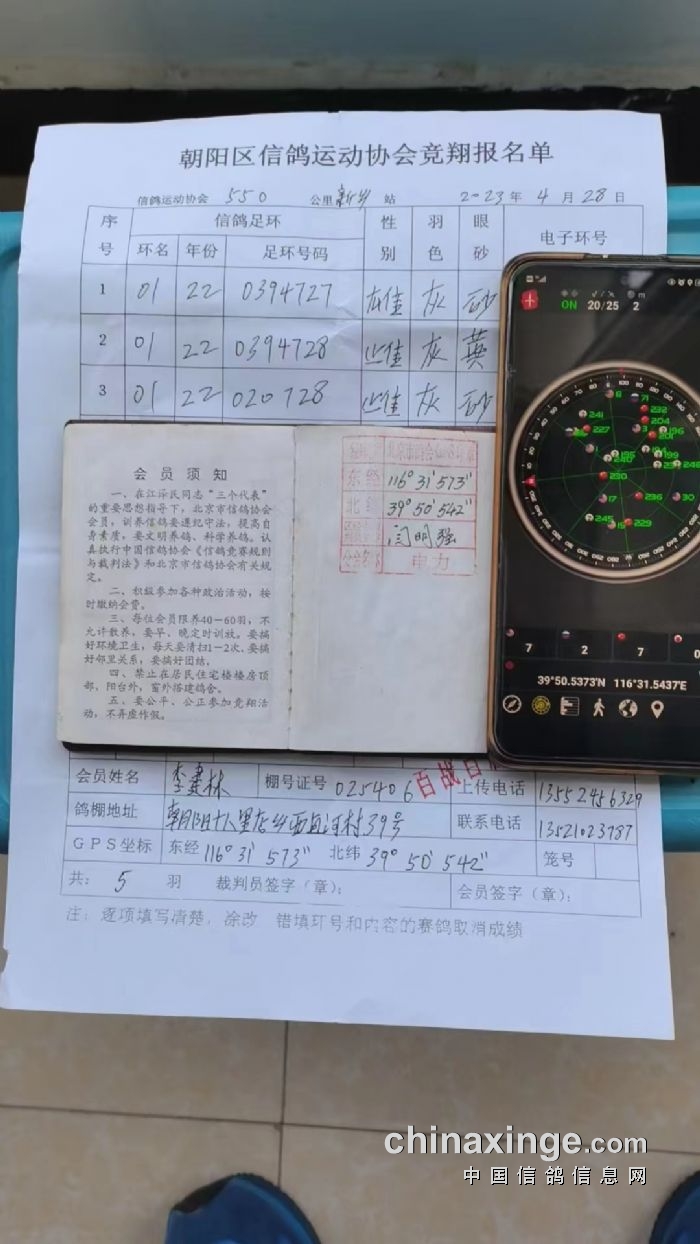 朝阳区信鸽运动协会竞翔报名单
信鸽运动协会 550 公里 新乡 站 2023 年 4 月 28 日
序号 信鸽足环 性别 羽色 眼砂 电子环号
环名 年份 足环号码
1 01 22 0394727 灰 砂
2 01 22 0394728 灰 黄
3 01 22 020728 灰 砂
会员须知
一、在江泽民同志“三个代表”
的重要思想指导下，北京市信鸽协会
会员，训养信鸽要遵纪守法，提高自
身素质，要文明养鸽、科学养鸽。认
真执行中国信鸽协会《信鸽竞赛规则
与裁判法》和北京市信鸽协会有关规
定。
二、积极参加各种政治活动，按
时缴纳会费。
三、每位会员限养40－60羽，不
允许散养，要早、晚定时训放。要搞
好环境卫生，每天要清扫1－2次，要搞
好邻里关系，要搞好团结。
四、禁止在居民住宅楼楼房顶
部，阳台外，窗外搭建鸽舍。
五、要公平、公正参加竞翔活
动，不弄虚作假。
东经 116° 31' 573"
北纬 39° 50' 542"
闫明强
电力
ON 20/25 2
7 2 7 0
39°50.5373'N 116°31.5437'E
会员姓名 李建林 棚号证号 025406 百战 上传电话 13552456329
鸽棚地址 朝阳十八里店乡西直河村39号 联系电话 13521023787
GPS坐标 东经 116° 31' 573" 北纬 39° 50' 542" 笼号
共： 5 羽 裁判员签字（章）： 会员签字（章）：
注：逐项填写清楚，涂改 错填环号和内容的赛鸽取消成绩
chinaxinge.com
中国信鸽信息网